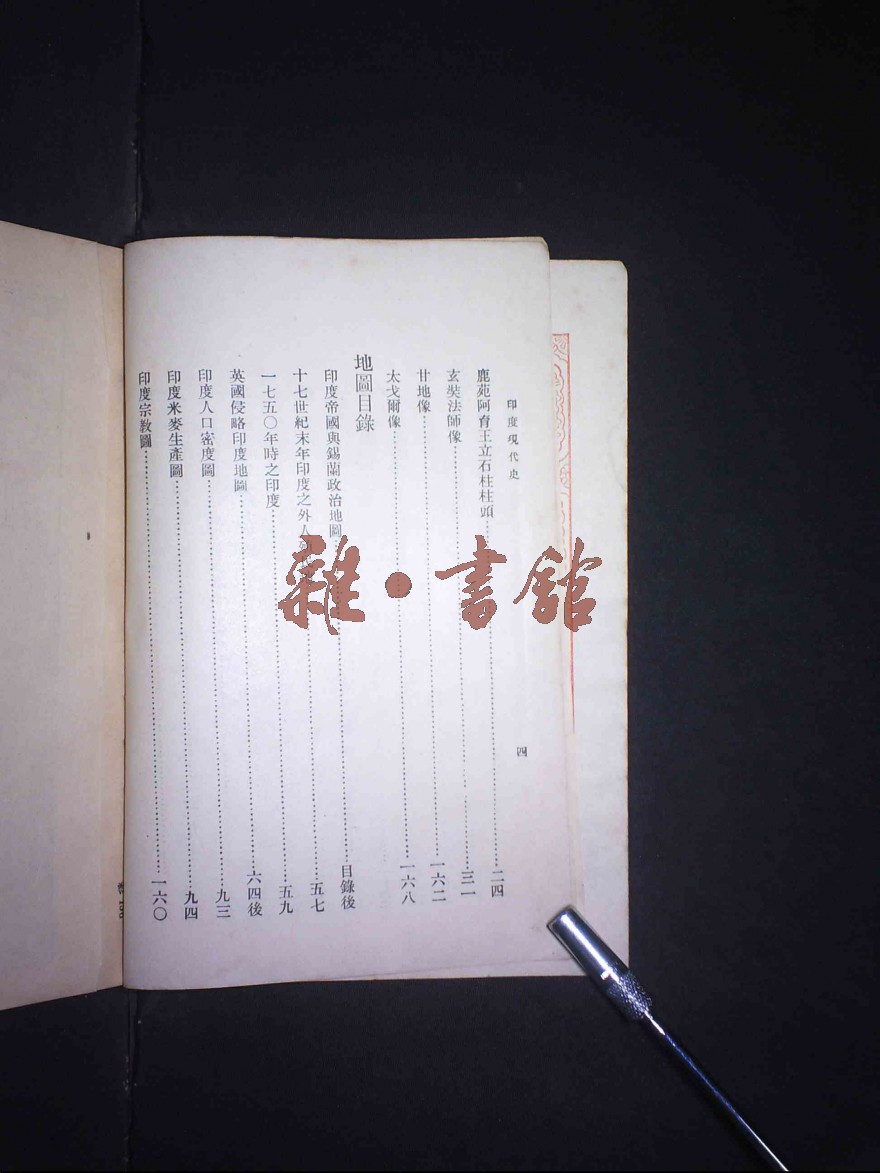 印度現代史
四
鹿苑阿育王立石柱柱頭……二四
玄奘法師像……三一
甘地像……一六二
太戈爾像……一六八
地圖目錄
印度帝國與錫蘭政治地圖……目錄後
十七世紀末年印度之外人……五七
一七五〇年時之印度……五九
英國侵略印度地圖……六四後
印度人口密度圖……九三
印度米麥生產圖……九四
印度宗教圖……一六〇
雜·書館